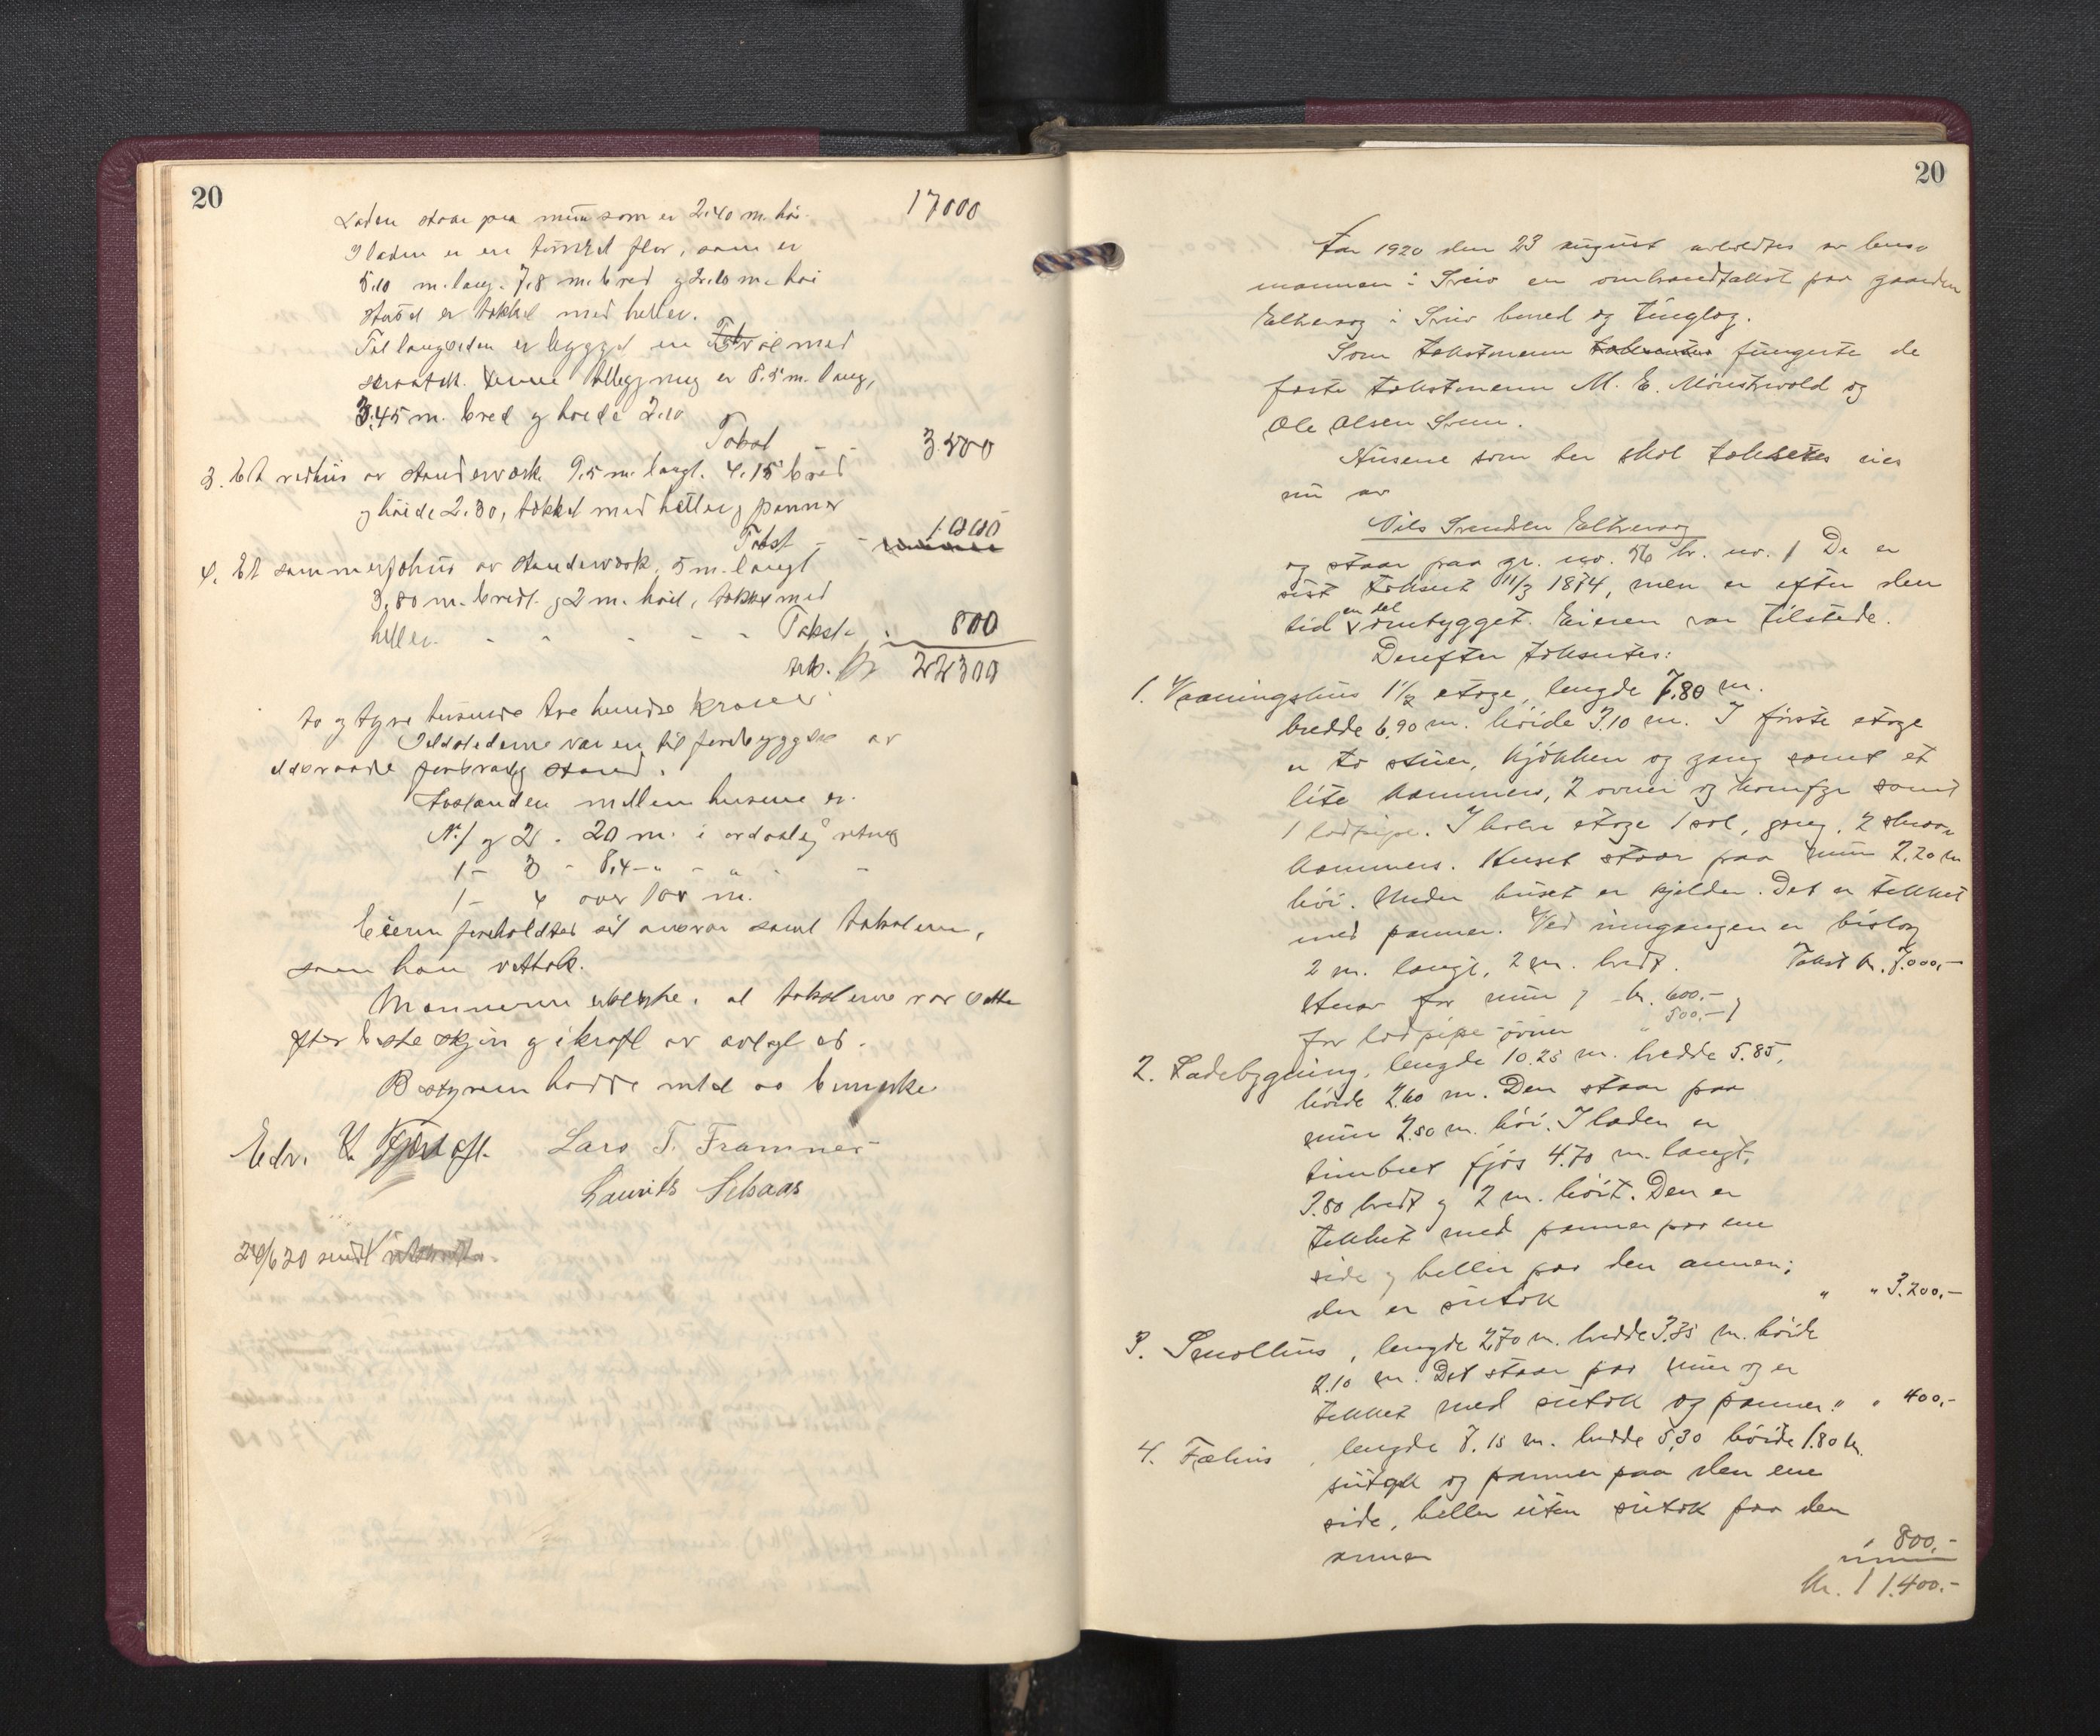 20
17000
Laden staar paa mur som er 2.40 m. høi.
I laden er en tømret flor, som er
5.10 m. lang. 7.8 m. bred og 2.10 m. høi
er tækket med heller.
Til langsiden er bygget en med
Denne tilbygning er 8.5 m. lang,
3.45 m. bred og høide 2.10
Takst - - 3500
3. Et vedhus av standerværk 9.5 m. langt. 4.15 bred
og høide 2.30, tækket med heller og panner
Takst - - 1000
4. Et sommerfjøhus av standerværk, 5 m. langt
3.80 m. bredt. og 2 m. høit, tækket med
heller. - - - - - Takst. 800
kr 22300
to og tyve tusende tre hundre kroner
Ildstederne var en til forebyggelse av
ildsvaade forsvarlig stand.
Avstanden mellem husene er.
Nr. 1 og 2 . 20 m. i retning
1 - 3 - 8,4 - " - " - -
1 - 4 over 100 m.
Eieren foreholdtes sit ansvar samt taksterne,
som han vedtok.
Mænnerne erklærte, at taksterne var satte
efter beste skjøn og i kraft av avlagt ed.
Bestyreren hadde intet at bemerke
Edv. K. Lars T. Framnes
Laurits Selsaas
24/6 20 sendt
20
Aar 1920 den 23 august avholdtes av lens-
mannen i Sveio en ombrandtakst paa gaarden
Elkersog i Sveio herred og tinglag.
Som takstmenn fungerte de
faste takstmenn M. E. Mønstrevold og
Ole Olsen Sveen.
Husene som her skal takseres eies
nu av
Nils Svendsen Elkersog
og staar paa gr. no. 56 br. no. 1 De er
sist taksert 11/3 1874, men er efter den
tid en del ombygget. Eieren var tilstede.
Derefter takseertes:
1. Vaaningshus 1 1/2 etage, lengde 7.80 m.
bredde 6.90 m. høide 3.10 m. I første etage
er to stuer, kjøkken og gang samt et
lite kammers, 2 ovner og komfyr samt
1 lodpipe. I halv etage 1 sal, gang, 2 skraa-
kammers. Huset staar paa mur 2.20 m
høi. Under huset er kjelder. Det er tekket
med panner. Ved inngangen er bislag
2 m. langt, 2 m. bredt. Takst kr. 7.000,-
Herav for mur kr. 600.-
for lodpipe - ovner " 500.-
2. Ladebygning, lengde 10.25 m. bredde 5.85,
høide 2.60 m. Den staar paa
mur 2.50 m. høi. I laden er
timbret fjøs 4.70 m. langt,
3.80 bredt og 2 m. høit. Den er
tekket med panner paa ene
side og heller paa den annen;
der er sutak " " 3.200.-
3. Smalhus, lengde 2.70 m. bredde 3.35 m. høide
2.10 m. Det staar paa mur og er
tekket med sutak og panner. " " 400.-
4. Fæhus, lengde 7.15 m. bredde 5.30 høide 1.80 m.
sutak og panner paa den ene
side, heller uten sutak paa den
annen " 800.-
Kr. 11.400.-